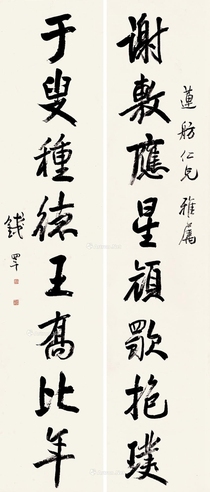 蓮舫仁兄雅屬
謝敷應星顧歡抱璞
于叟種德王喬比年
錢罕